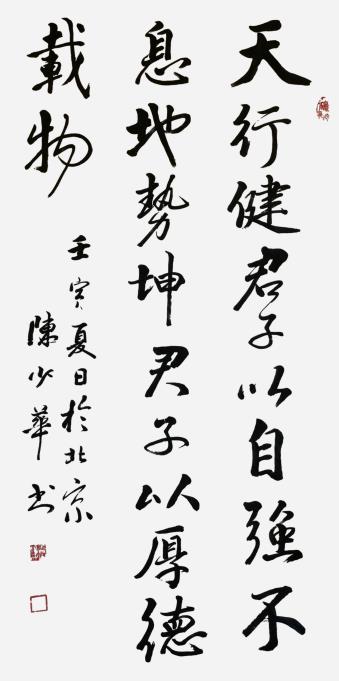 天行健君子以自強不
息地勢坤君子以厚德
載物
壬寅夏日於北京
陳少華書